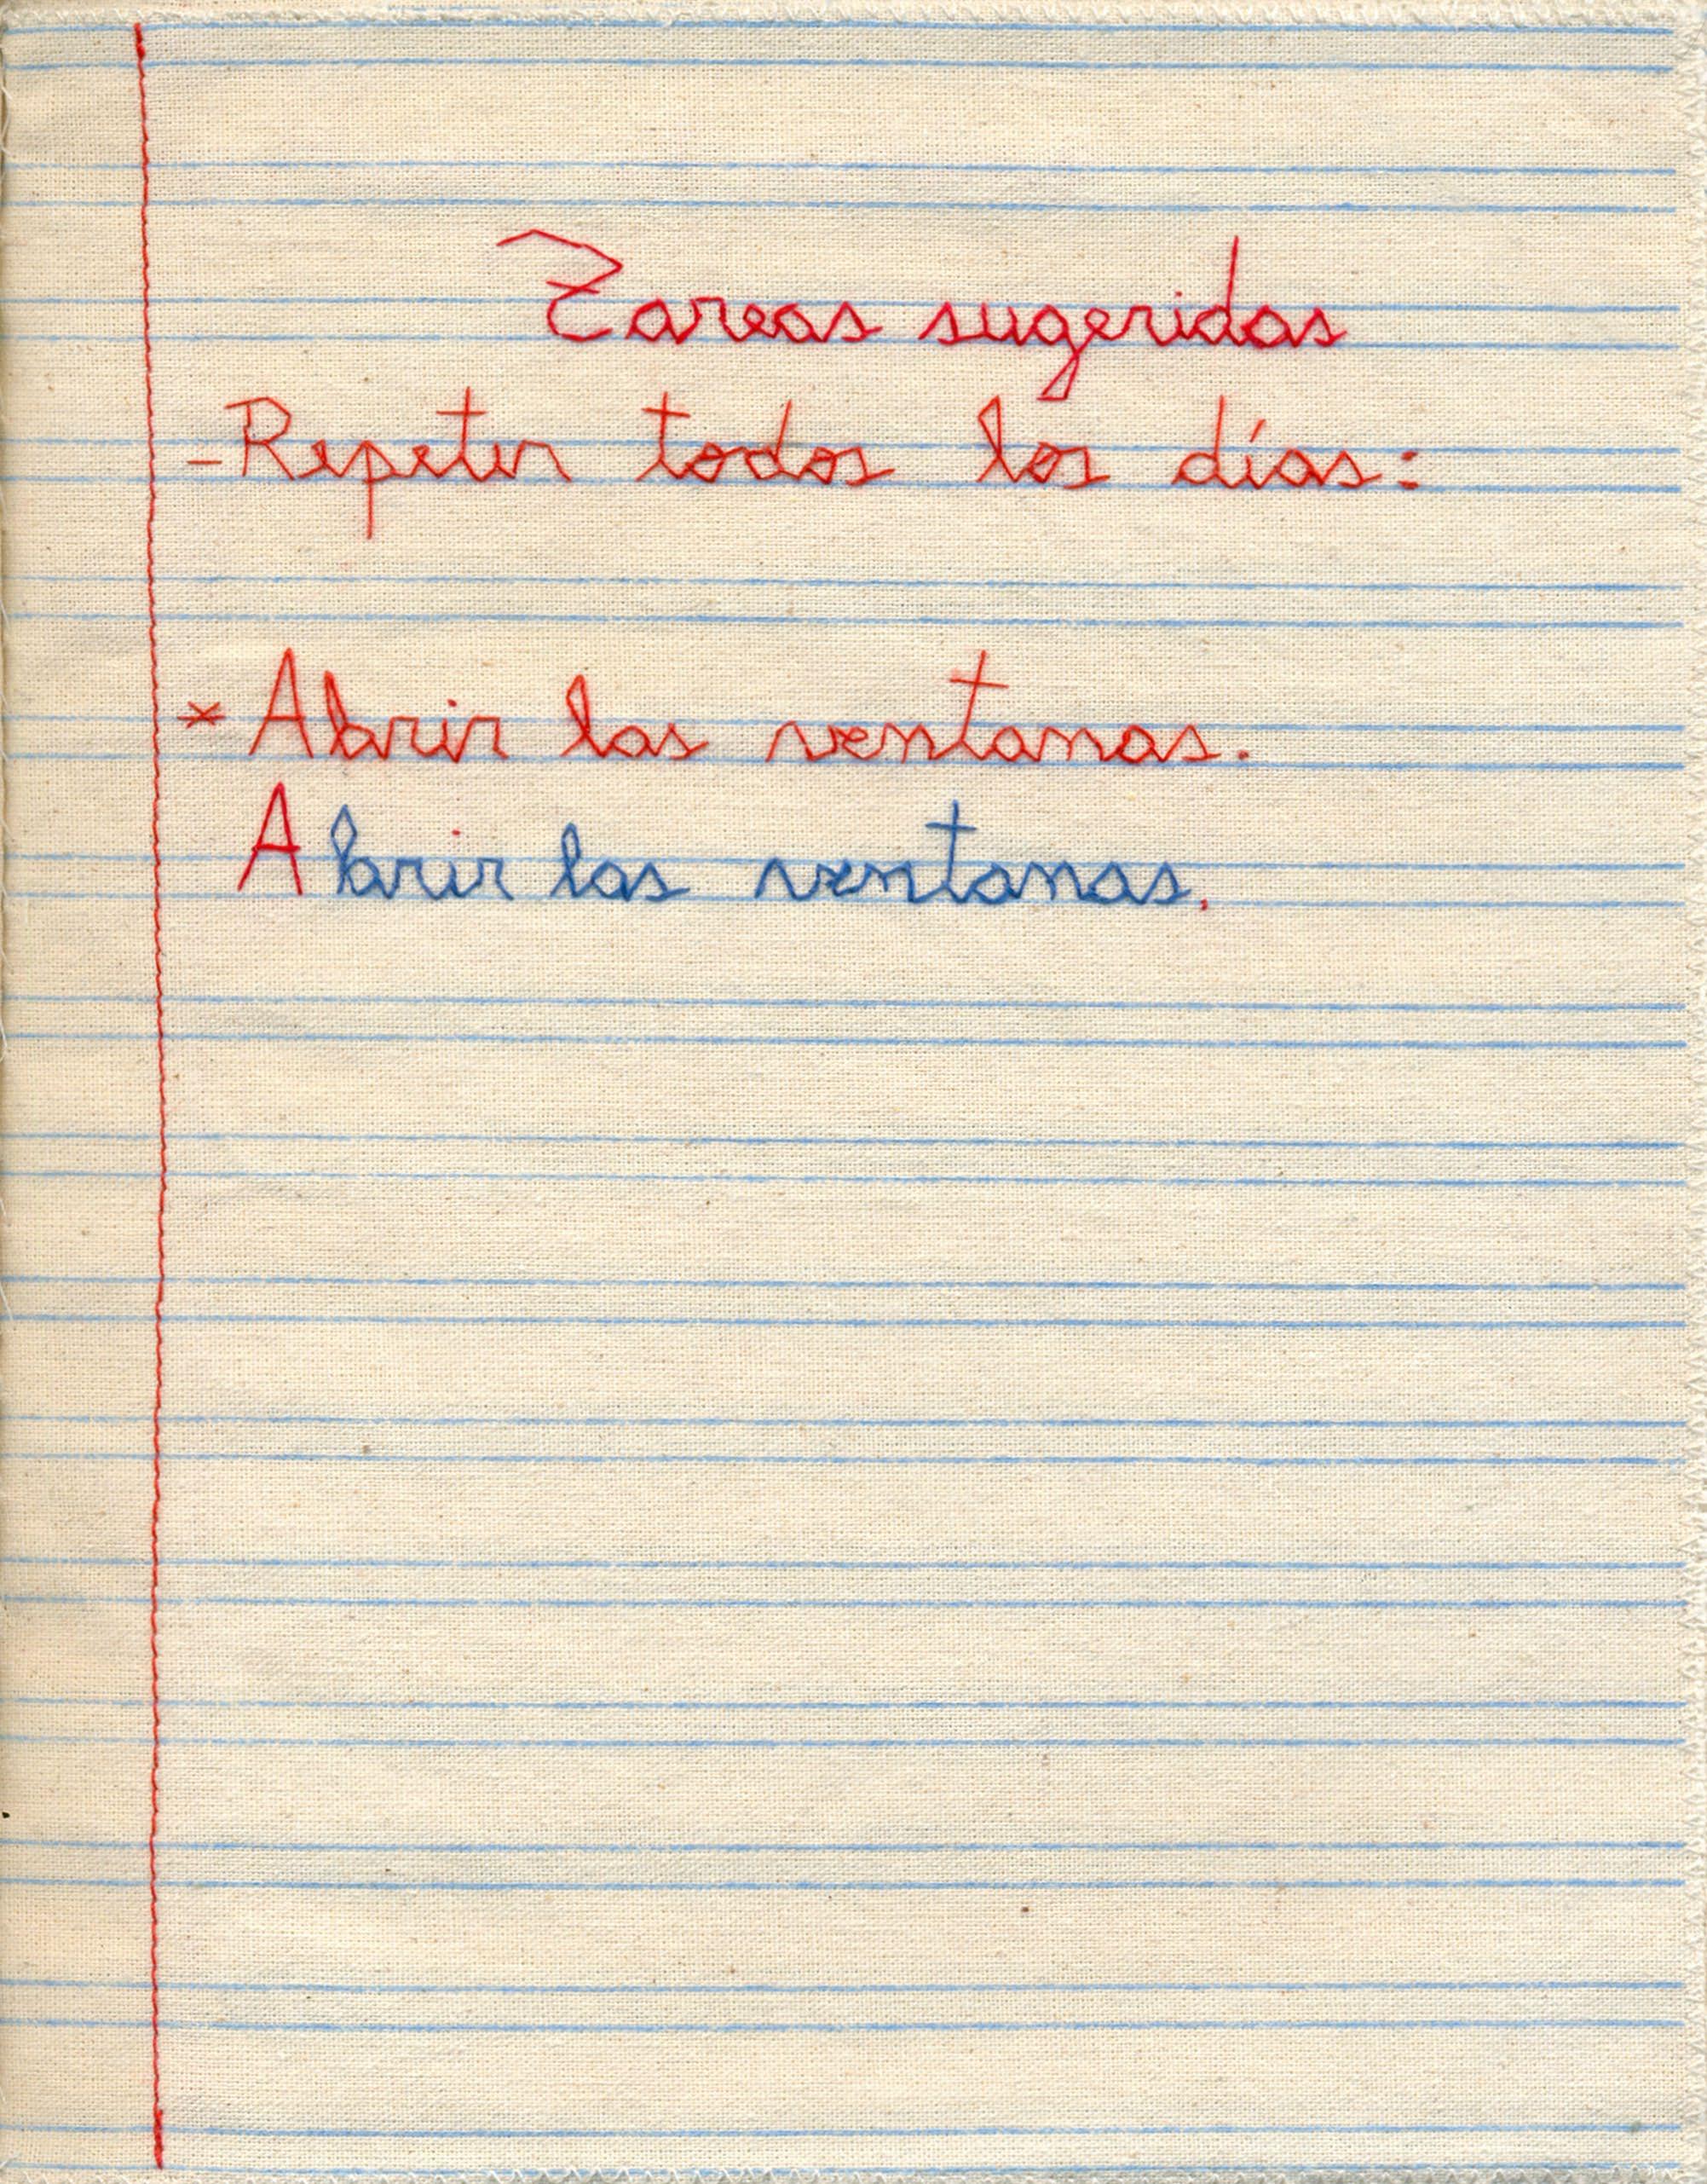 Tareas sugeridas
-Repetir todos los días:
* Abrir las ventanas.
Abrir las ventanas.